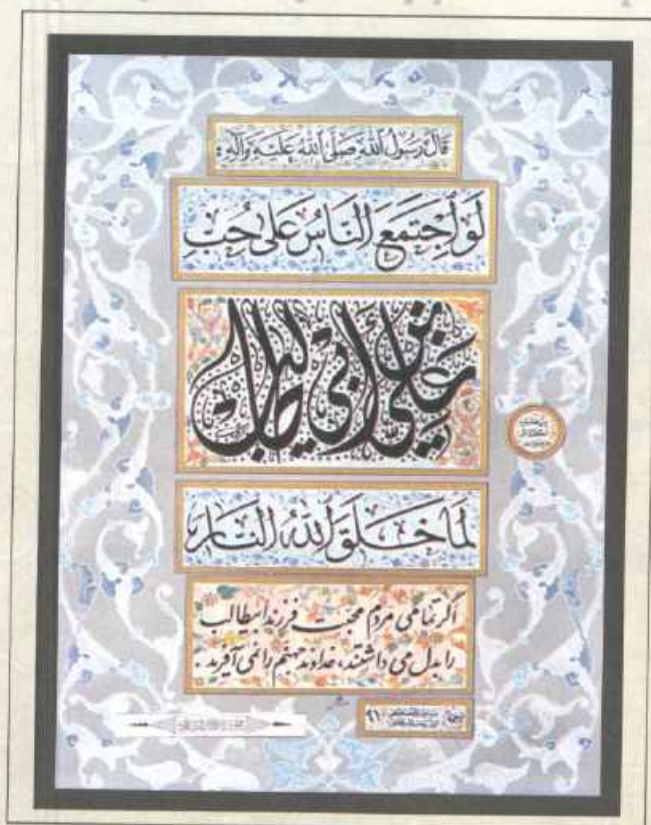 قَالَ رَسُولُ اللهِ صَلَّی اللهُ عَلَیْهِ وَآلِهِ:
لَوِ اجْتَمَعَ النَّاسُ عَلی حُبِّ
عَلِیِّ بْنِ أَبِی طَالِبٍ
لَمَا خَلَقَ اللهُ النَّارَ
اگر تمامی مردم محبت فرزند ابیطالب
را بدل می داشتند، خداوند جهنم را نمی آفرید.
۹۱